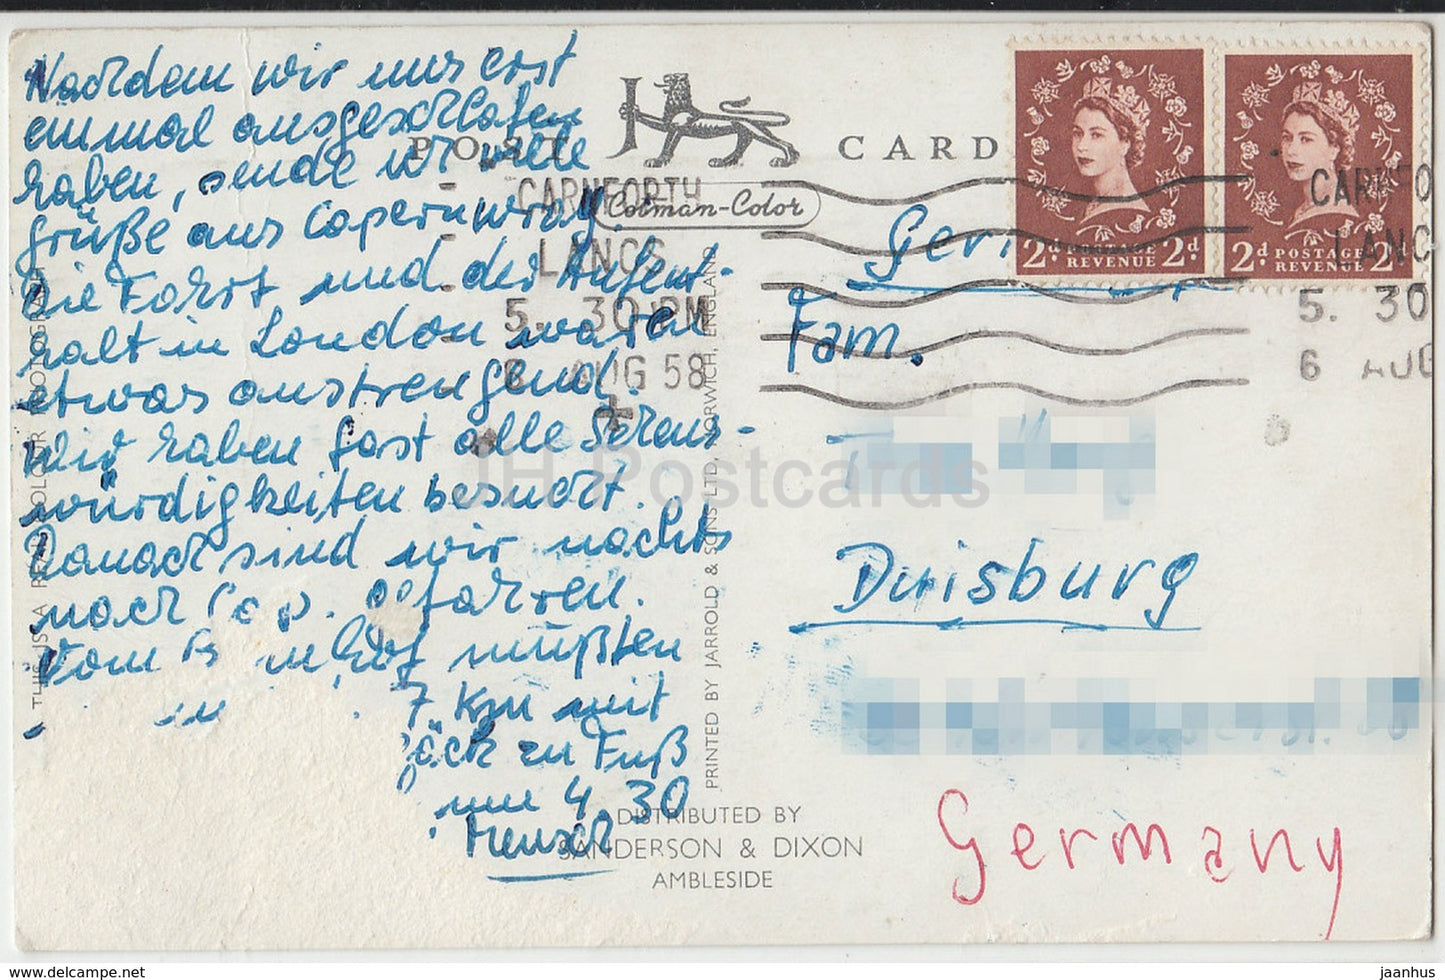 Nachdem wir uns erst
einmal ausgeschlafen
haben, sende wir viele
Grüße aus Capernwray.
Die Fahrt und der Aufent-
halt in London waren
etwas anstrengend.
Wir haben fast alle Sehens-
würdigkeiten besucht.
Danach sind wir nachts
nach Cap. gefahren.
Vom B nhof mußten
7 km mit
päck zu Fuß
um 4.30
Mensch
POST CARD
Colman-Color
CARNFORTH
LANCS
5. 30 PM
6 AUG 58
2d POSTAGE REVENUE 2d
2d POSTAGE REVENUE 2d
CARNFO
LANC
5. 30
6 AUG
Fam.
Duisburg
Germany
THIS IS A REAL COLOUR PHOTOGRAPH
PRINTED BY JARROLD & SONS LTD, NORWICH, ENGLAND
DISTRIBUTED BY
SANDERSON & DIXON
AMBLESIDE
JH Postcards
www.delcampe.net
jaanhus